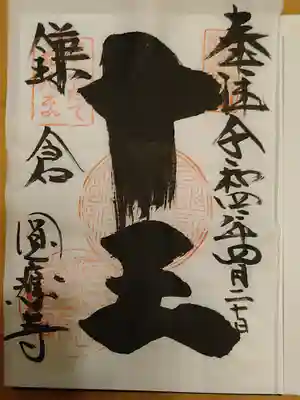 奉拝 令和四年四月二十日
十王
鎌倉
圓應寺